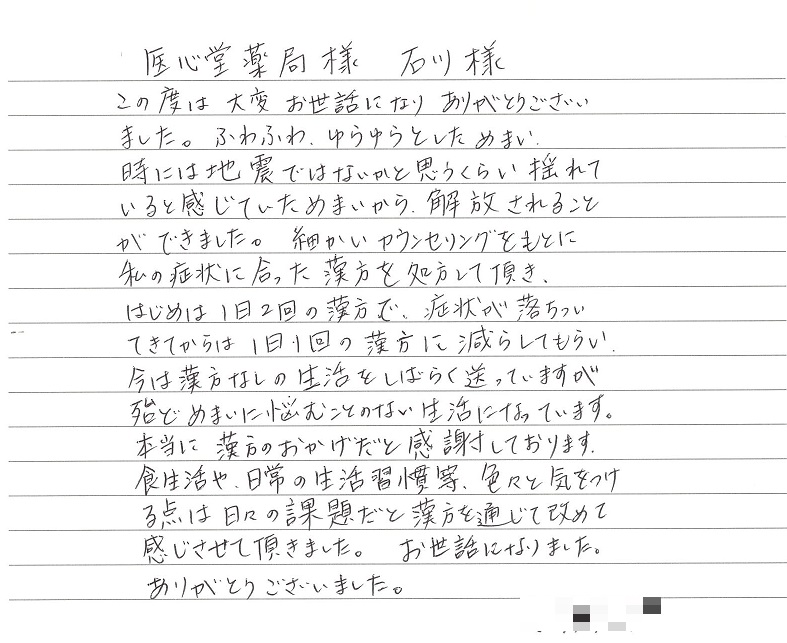 医心堂薬局様　石川様
この度は大変お世話になりありがとうござい
ました。ふわふわ、ゆらゆらとしためまい、
時には地震ではないかと思うくらい揺れて
いると感じていためまいから、解放されること
ができました。細かいカウンセリングをもとに
私の症状に合った漢方を処方して頂き、
はじめは1日2回の漢方で、症状が落ちつい
てきてからは1日1回の漢方に減らしてもらい、
今は漢方なしの生活をしばらく送っていますが
殆どめまいに悩むことのない生活になっています。
本当に漢方のおかげだと感謝しております。
食生活や、日常の生活習慣等、色々と気をつけ
る点は日々の課題だと漢方を通じて改めて
感じさせて頂きました。お世話になりました。
ありがとうございました。